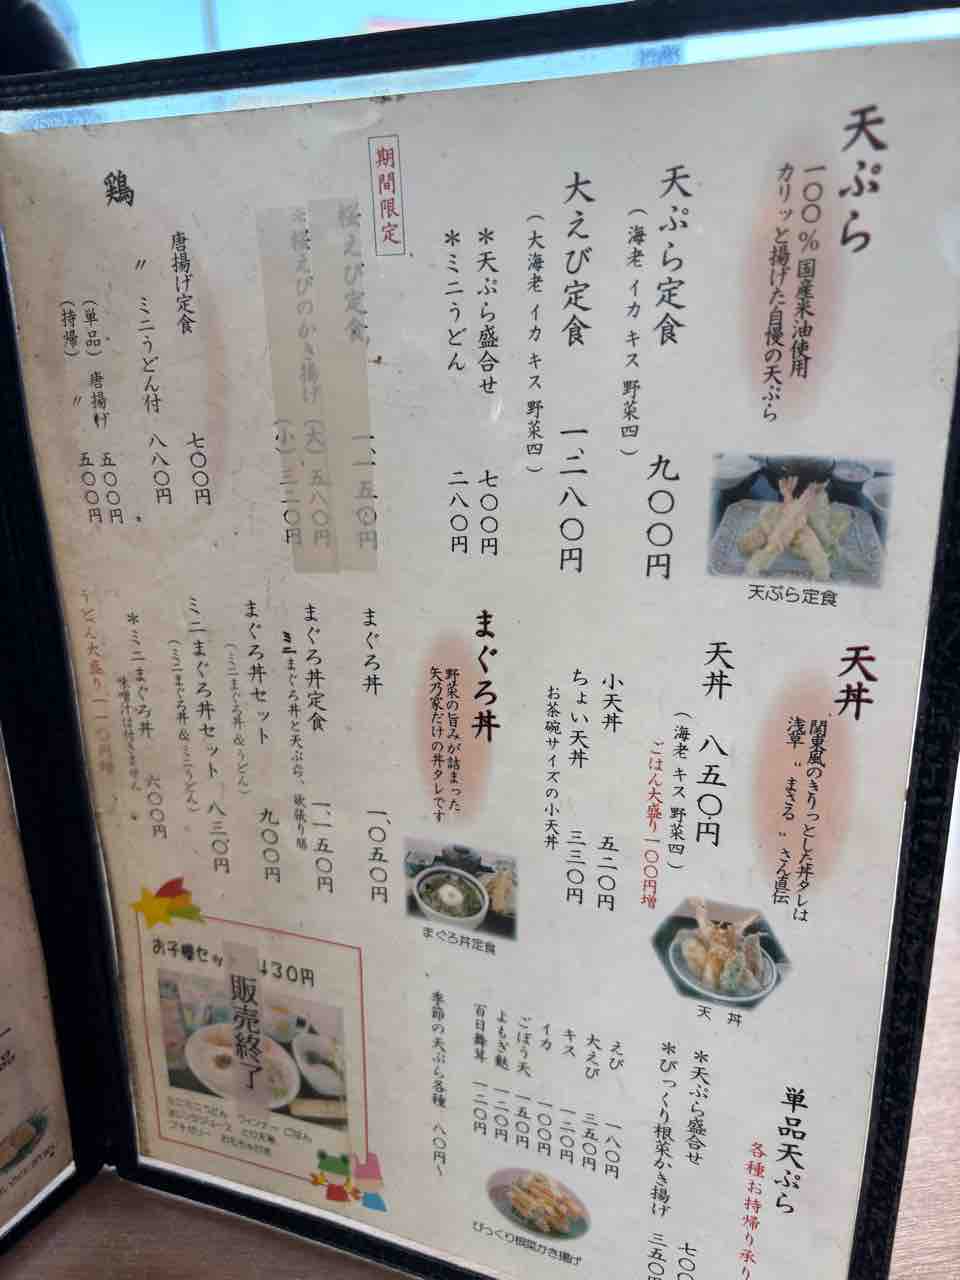 天ぷら
一〇〇%国産米油使用
カリッと揚げた自慢の天ぷら
天ぷら定食 九〇〇円
(海老 イカ キス 野菜四)
大えび定食 一、二八〇円
(大海老 イカ キス 野菜四)
*天ぷら盛合せ 七〇〇円
*ミニうどん 二八〇円
期間限定
桜えび定食 一、一五〇円
*桜えびのかき揚げ (大) 五八〇円
(小) 三二〇円
鶏
唐揚げ定食 七〇〇円
〃 ミニうどん付 八八〇円
(単品) 唐揚げ 五〇〇円
(持帰) 〃 五〇〇円
天ぷら定食
天丼
関東風のきりっとした丼タレは
浅草〝まさる〟さん直伝
天丼 八五〇円
(海老 キス 野菜四)
ごはん大盛り一〇〇円増
小天丼 五二〇円
ちょい天丼 三三〇円
お茶碗サイズの小天丼
天丼
まぐろ丼
野菜の旨みが詰まった
矢乃家だけの丼タレです
まぐろ丼 一、〇五〇円
まぐろ丼定食 一、一五〇円
ミニまぐろ丼と天ぷら、欲張り膳
まぐろ丼セット 九〇〇円
(ミニまぐろ丼&うどん)
ミニまぐろ丼セット 八三〇円
(ミニまぐろ丼&ミニうどん)
*ミニまぐろ丼 六〇〇円
味噌汁は付きません
うどん大盛り一一〇円増
まぐろ丼定食
単品天ぷら
各種お持帰り承り
*天ぷら盛合せ 七〇
*びっくり根菜かき揚げ 三五〇
えび 一八〇円
大えび 三五〇円
キス 一二〇円
イカ 一〇〇円
ごぼう天 一五〇円
よもぎ麩 一二〇円
百日舞茸 一二〇円
季節の天ぷら各種 八〇円〜
びっくり根菜かき揚げ
お子様セッ 430円
販売終了